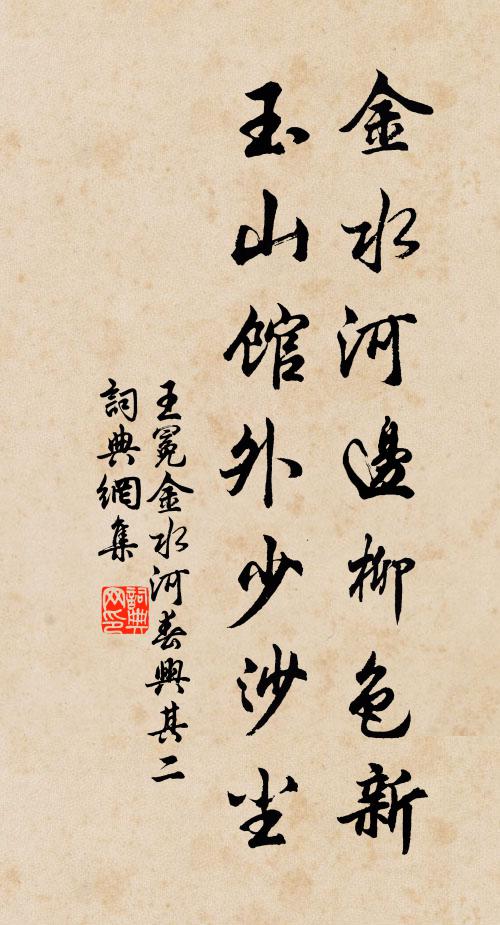 金水河邊柳色新
玉山館外少沙尘
王冕金水河春興其二
詞典網集
詞典网印